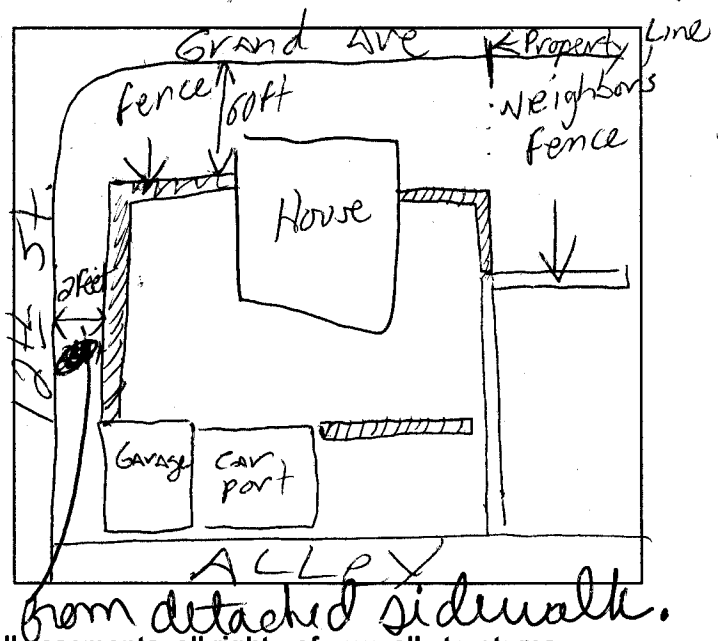 Grand Ave
Property Line
fence
60ft
Neighbors
fence
House
12th St.
2 feet
Garage
Car
port
ALLEY
from detached sidewalk.